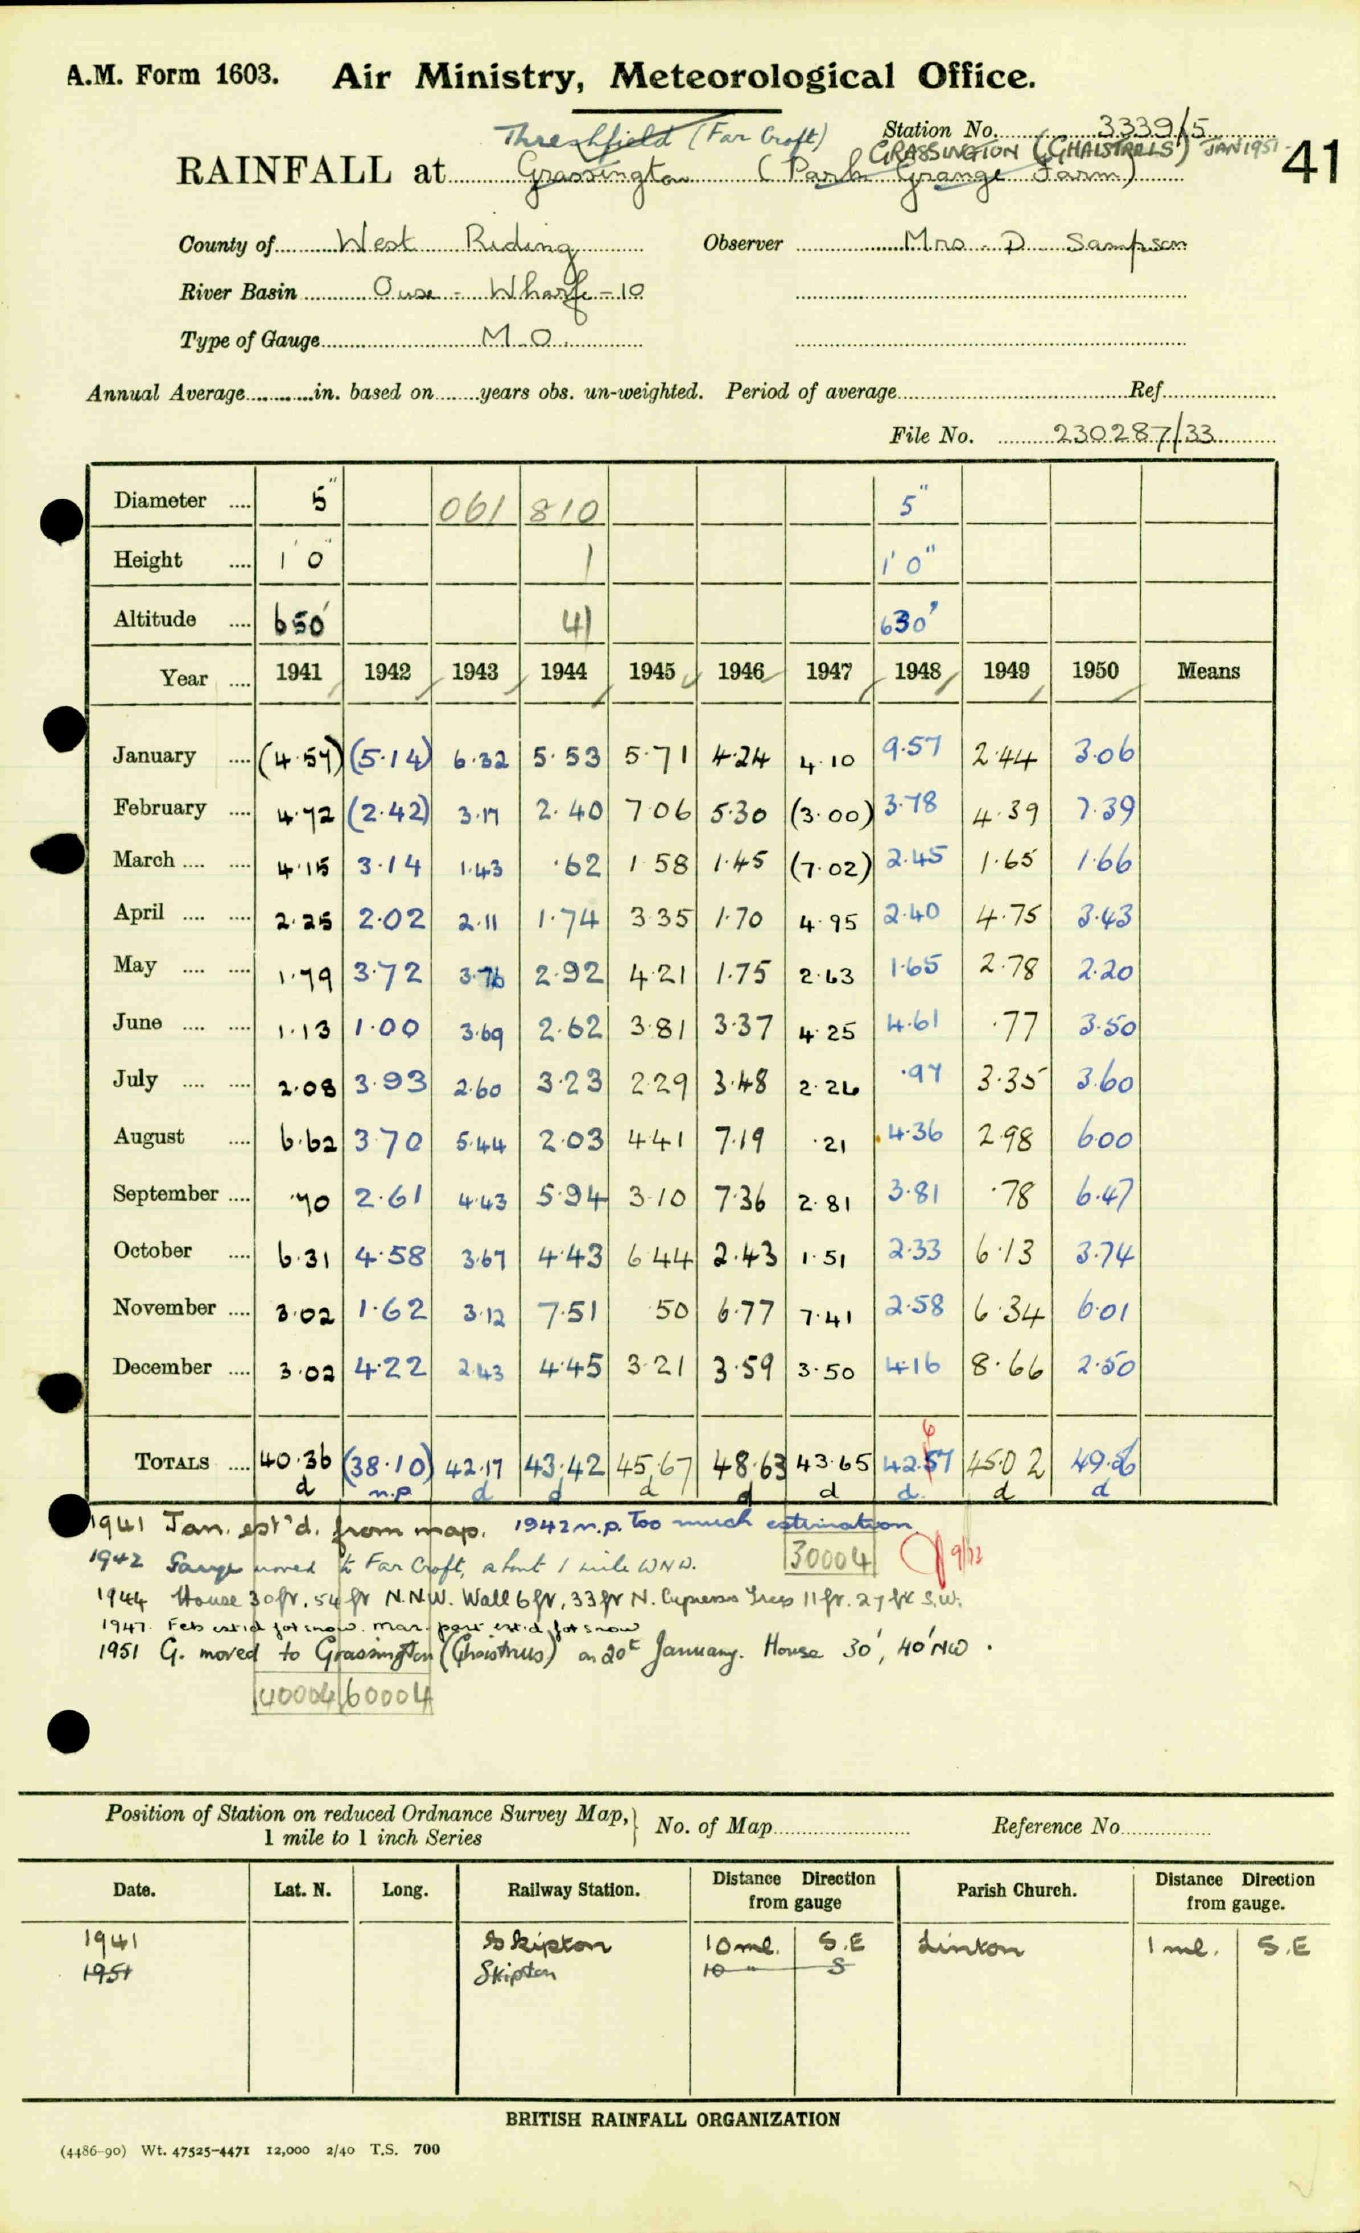 A.M. Form 1603. Air Ministry, Meteorological Office.
Threshfield (Far Croft) Station No. 3339/5
GRASSINGTON (GHAISTRILLS) JAN 1951
RAINFALL at Grassington (Park Grange Farm) 41
County of West Riding Observer Mrs. D Sampson
River Basin Ouse - Wharfe - 10
Type of Gauge M.O.
Annual Average in. based on years obs. un-weighted. Period of average Ref
File No. 230287/33
Diameter 5" 061 810 5"
Height 1' 0" 1 1' 0"
Altitude 650' 41 630'
Year 1941 1942 1943 1944 1945 1946 1947 1948 1949 1950 Means
January (4.57) (5.14) 6.32 5.53 5.71 4.24 4.10 9.57 2.44 3.06
February 4.72 (2.42) 3.17 2.40 7.06 5.30 (3.00) 3.78 4.39 7.39
March 4.15 3.14 1.43 .62 1.58 1.45 (7.02) 2.45 1.65 1.66
April 2.25 2.02 2.11 1.74 3.35 1.70 4.95 2.40 4.75 3.43
May 1.79 3.72 3.76 2.92 4.21 1.75 2.63 1.65 2.78 2.20
June 1.13 1.00 3.69 2.62 3.81 3.37 4.25 4.61 .77 3.50
July 2.08 3.93 2.60 3.23 2.29 3.48 2.26 .97 3.35 3.60
August 6.62 3.70 5.44 2.03 4.41 7.19 .21 4.36 2.98 6.00
September .70 2.61 4.43 5.94 3.10 7.36 2.81 3.81 .78 6.47
October 6.31 4.58 3.67 4.43 6.44 2.43 1.51 2.33 6.13 3.74
November 3.02 1.62 3.12 7.51 .50 6.77 7.41 2.58 6.34 6.01
December 3.02 4.22 2.43 4.45 3.21 3.59 3.50 4.16 8.66 2.50
6
TOTALS 40.36 (38.10) 42.17 43.42 45.67 48.63 43.65 42.57 45.02 49.56
d n.p d d d d d d d d
1941 Jan. est'd. from map. 1942 n.p. Too much estimation
1942 Gauge moved to Far Croft, about 1 mile WNW. 30004 9/72
1944 House 30ft, 54ft N.N.W. Wall 6ft, 33ft N. Cypress Trees 11ft. 27ft S.W.
1947. Feb est'd for snow. Mar. part est.d for snow
1951 G. moved to Grassington (Ghaistrills) on 20th January. House 30', 40' NW.
40004 60004
Position of Station on reduced Ordnance Survey Map, 1 mile to 1 inch Series } No. of Map Reference No.
Date. Lat. N. Long. Railway Station. Distance Direction from gauge Parish Church. Distance Direction from gauge.
1941 Skipton 10 ml. S.E Linton 1 ml. S.E
1951 Skipton 10 " S
BRITISH RAINFALL ORGANIZATION
(4486-90) Wt. 47525-4471 12,000 2/40 T.S. 700